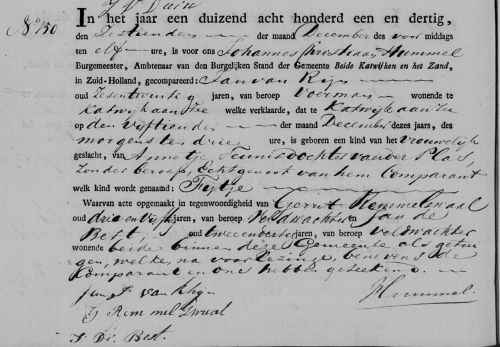 No 150
In het jaar een duizend acht honderd een en dertig,
den Zestienden der maand December des voor middags
ten elf ure, is voor ons Johannes Christiaan Hummel
Burgemeester, Ambtenaar van den Burgelijken Stand der Gemeente Beide Katwijken en het Zand,
in Zuid-Holland, gecompareerd: Jan van Rijn
oud Zesentwintig jaren, van beroep Voerman wonende te
Katwijk aan Zee welke verklaarde, dat te Katwijk aan Zee
op den vijftienden der maand December dezes jaars, des
morgens ten drie ure, is geboren een kind van het vrouwelijk
geslacht, van Annetje Teunisdochter van der Plas,
zonder beroep, Echtgenoot van hem Comparant
welk kind word genaamd:
Waarvan acte opgemaakt in tegenwoordigheid van Gerrit Remmelzwaal
oud drie en vijftig jaren, van beroep Veldwachter en Jan de
Best, oud twee en dertig jaren, van beroep veldwachter
wonende beide binnen deze Gemeente als getui-
gen, welke, na voorlezinge, benevens de
Comparant en ons hebben geteekend.
van Rhyn
Hummel.
G Rem mel Zwaal
J. De Best.